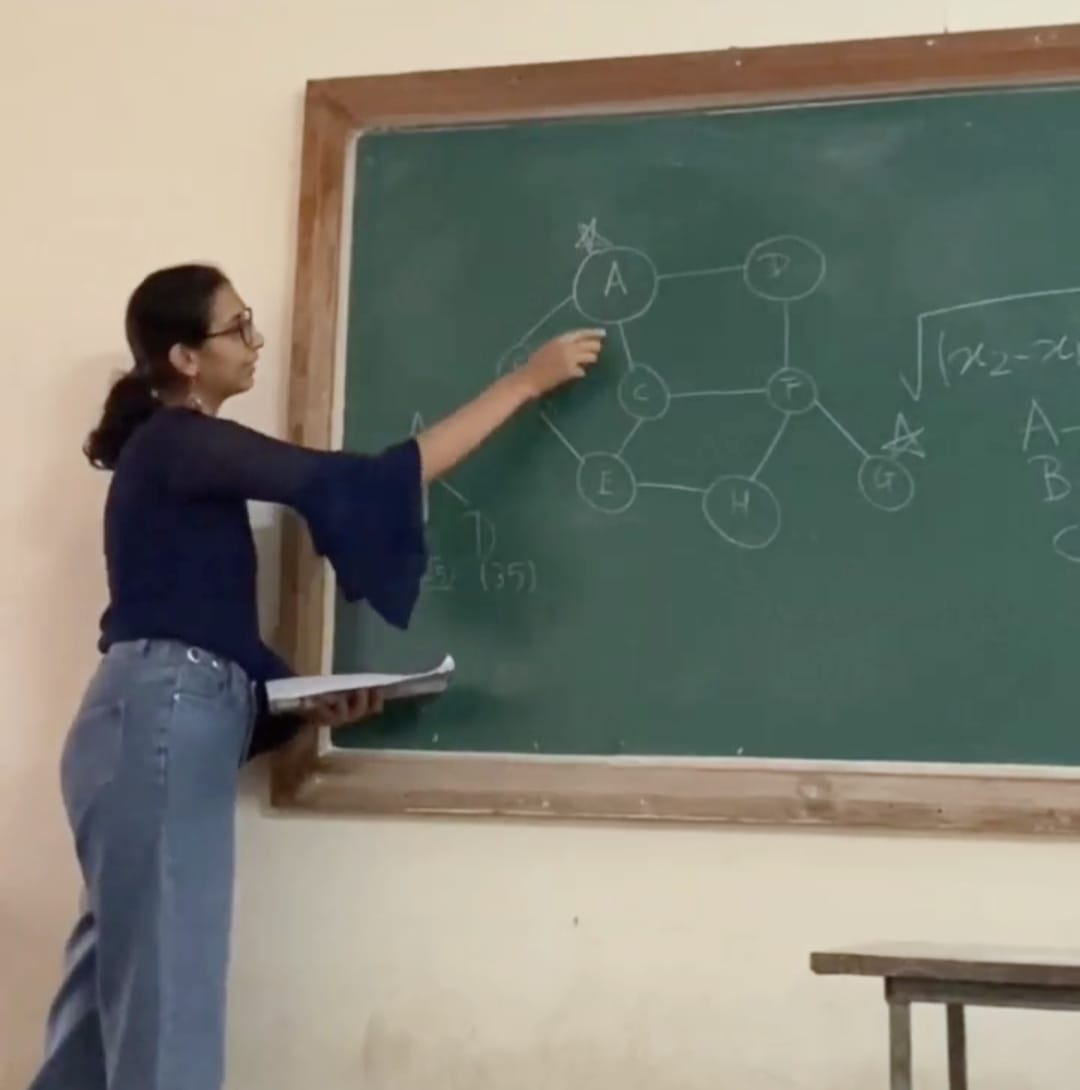 A D
C F
E H G
A
D
(35)
√(x₂-x₁
A-
B
C